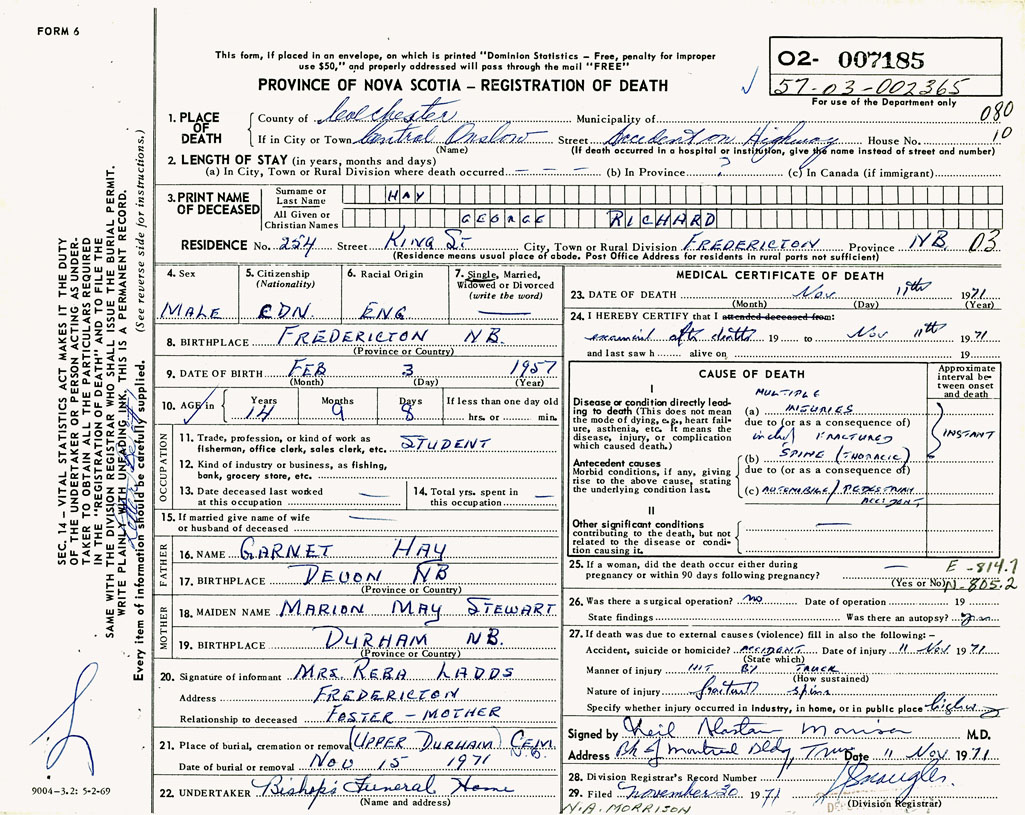 FORM 6
This form, if placed in an envelope, on which is printed "Dominion Statistics – Free, penalty for improper
use $50," and properly addressed will pass through the mail "FREE"
PROVINCE OF NOVA SCOTIA – REGISTRATION OF DEATH
02- 007185
57-03-002365
For use of the Department only
1. PLACE OF DEATH
County of Colchester Municipality of 080
If in City or Town Central Onslow Street Accident on Highway House No. 10
(Name) (If death occurred in a hospital or institution, give the name instead of street and number)
2. LENGTH OF STAY (in years, months and days)
(a) In City, Town or Rural Division where death occurred – – – (b) In Province ? (c) In Canada (if immigrant)
3. PRINT NAME OF DECEASED
Surname or Last Name HAY
All Given or Christian Names GEORGE RICHARD
RESIDENCE No. 254 Street KING ST. City, Town or Rural Division FREDERICTON Province NB 03
(Residence means usual place of abode. Post Office Address for residents in rural parts not sufficient)
4. Sex MALE
5. Citizenship (Nationality) CDN.
6. Racial Origin ENG
7. Single, Married, Widowed or Divorced (write the word) —
8. BIRTHPLACE FREDERICTON NB.
(Province or Country)
9. DATE OF BIRTH FEB 3 1957
(Month) (Day) (Year)
10. AGE in Years 14 Months 9 Days 8 If less than one day old hrs. or min.
OCCUPATION
11. Trade, profession, or kind of work as fisherman, office clerk, sales clerk, etc. STUDENT
12. Kind of industry or business, as fishing, bank, grocery store, etc.
13. Date deceased last worked at this occupation —
14. Total yrs. spent in this occupation —
15. If married give name of wife or husband of deceased —
FATHER
16. NAME GARNET HAY
17. BIRTHPLACE DEVON NB
(Province or Country)
MOTHER
18. MAIDEN NAME MARION MAY STEWART
19. BIRTHPLACE DURHAM NB.
(Province or Country)
20. Signature of informant MRS. REBA LADDS
Address FREDERICTON
Relationship to deceased FOSTER – MOTHER
21. Place of burial, cremation or removal (UPPER DURHAM) CEM. N.B.
Date of burial or removal NOV 15 1971
22. UNDERTAKER Bishop's Funeral Home
(Name and address)
MEDICAL CERTIFICATE OF DEATH
23. DATE OF DEATH Nov 11th 1971
(Month) (Day) (Year)
24. I HEREBY CERTIFY that I attended deceased from:
examined after death 19 to Nov 11th 1971
and last saw h alive on 19
CAUSE OF DEATH
Approximate interval between onset and death
I
Disease or condition directly leading to death (This does not mean the mode of dying, e.g., heart failure, asthenia, etc. It means the disease, injury, or complication which caused death.)
MULTIPLE
(a) INJURIES
due to (or as a consequence of)
incl FRACTURED
(b) SPINE (THORACIC)
INSTANT
Antecedent causes
Morbid conditions, if any, giving rise to the above cause, stating the underlying condition last.
due to (or as a consequence of)
(c) AUTOMOBILE / PEDESTRIAN
ACCIDENT
II
Other significant conditions
contributing to the death, but not related to the disease or condition causing it.
—
25. If a woman, did the death occur either during pregnancy or within 90 days following pregnancy? —
(Yes or No)
E-814.7
N-805.2
26. Was there a surgical operation? no Date of operation 19
State findings Was there an autopsy?
27. If death was due to external causes (violence) fill in also the following:–
Accident, suicide or homicide? ACCIDENT Date of injury 11 Nov. 1971
(State which)
Manner of injury HIT BY TRUCK
(How sustained)
Nature of injury fractured spine
Specify whether injury occurred in industry, in home, or in public place highway
Signed by Neil Alastair Morrison M.D.
Address Bk of Montreal Bldg, Truro Date 11 Nov. 1971
28. Division Registrar's Record Number
29. Filed November 30 1971
(Division Registrar)
N.A. MORRISON
SEC. 14 – VITAL STATISTICS ACT MAKES IT THE DUTY
OF THE UNDERTAKER OR PERSON ACTING AS UNDER-
TAKER TO OBTAIN ALL THE PARTICULARS REQUIRED
IN THE "REGISTRATION OF DEATH" AND TO FILE THE
SAME WITH THE DIVISION REGISTRAR WHO SHALL ISSUE THE BURIAL PERMIT.
WRITE PLAINLY WITH UNFADING INK. THIS IS A PERMANENT RECORD.
Every item of information should be carefully supplied. (See reverse side for instructions.)
9004-3.2: 5-2-69